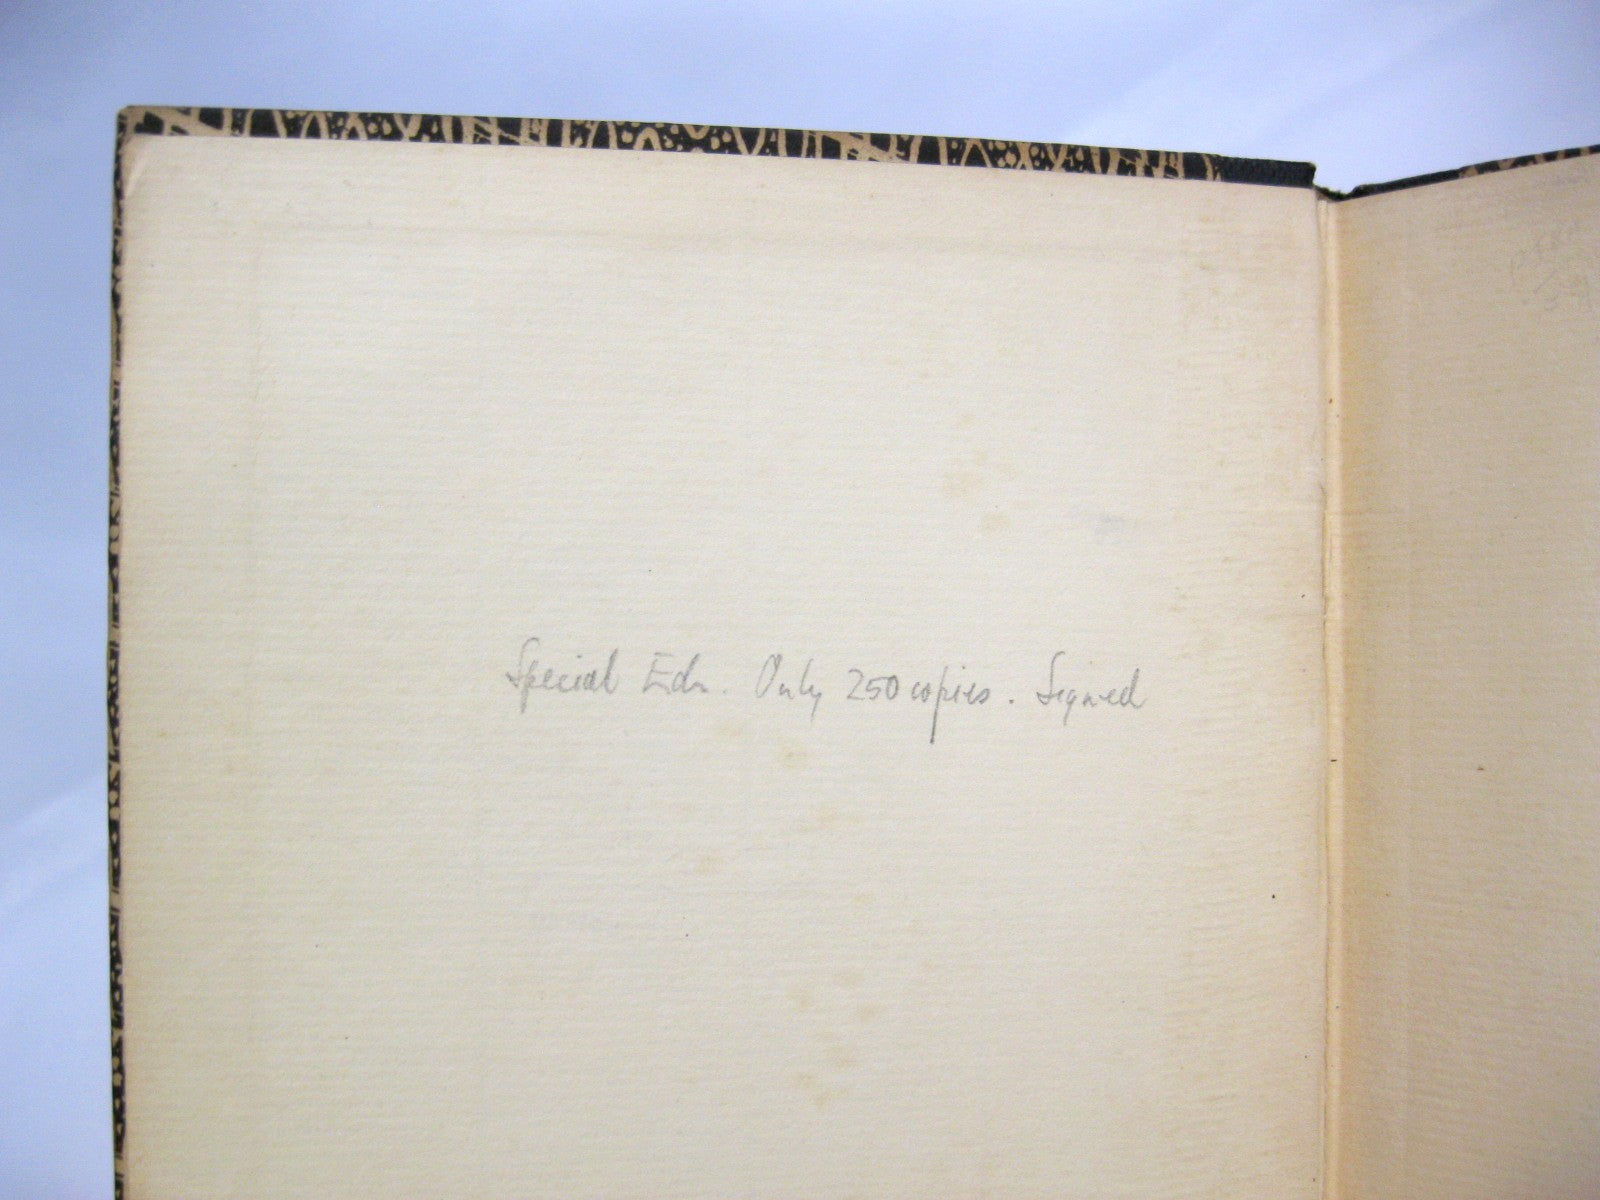 Special Edn. Only 250 copies. Signed